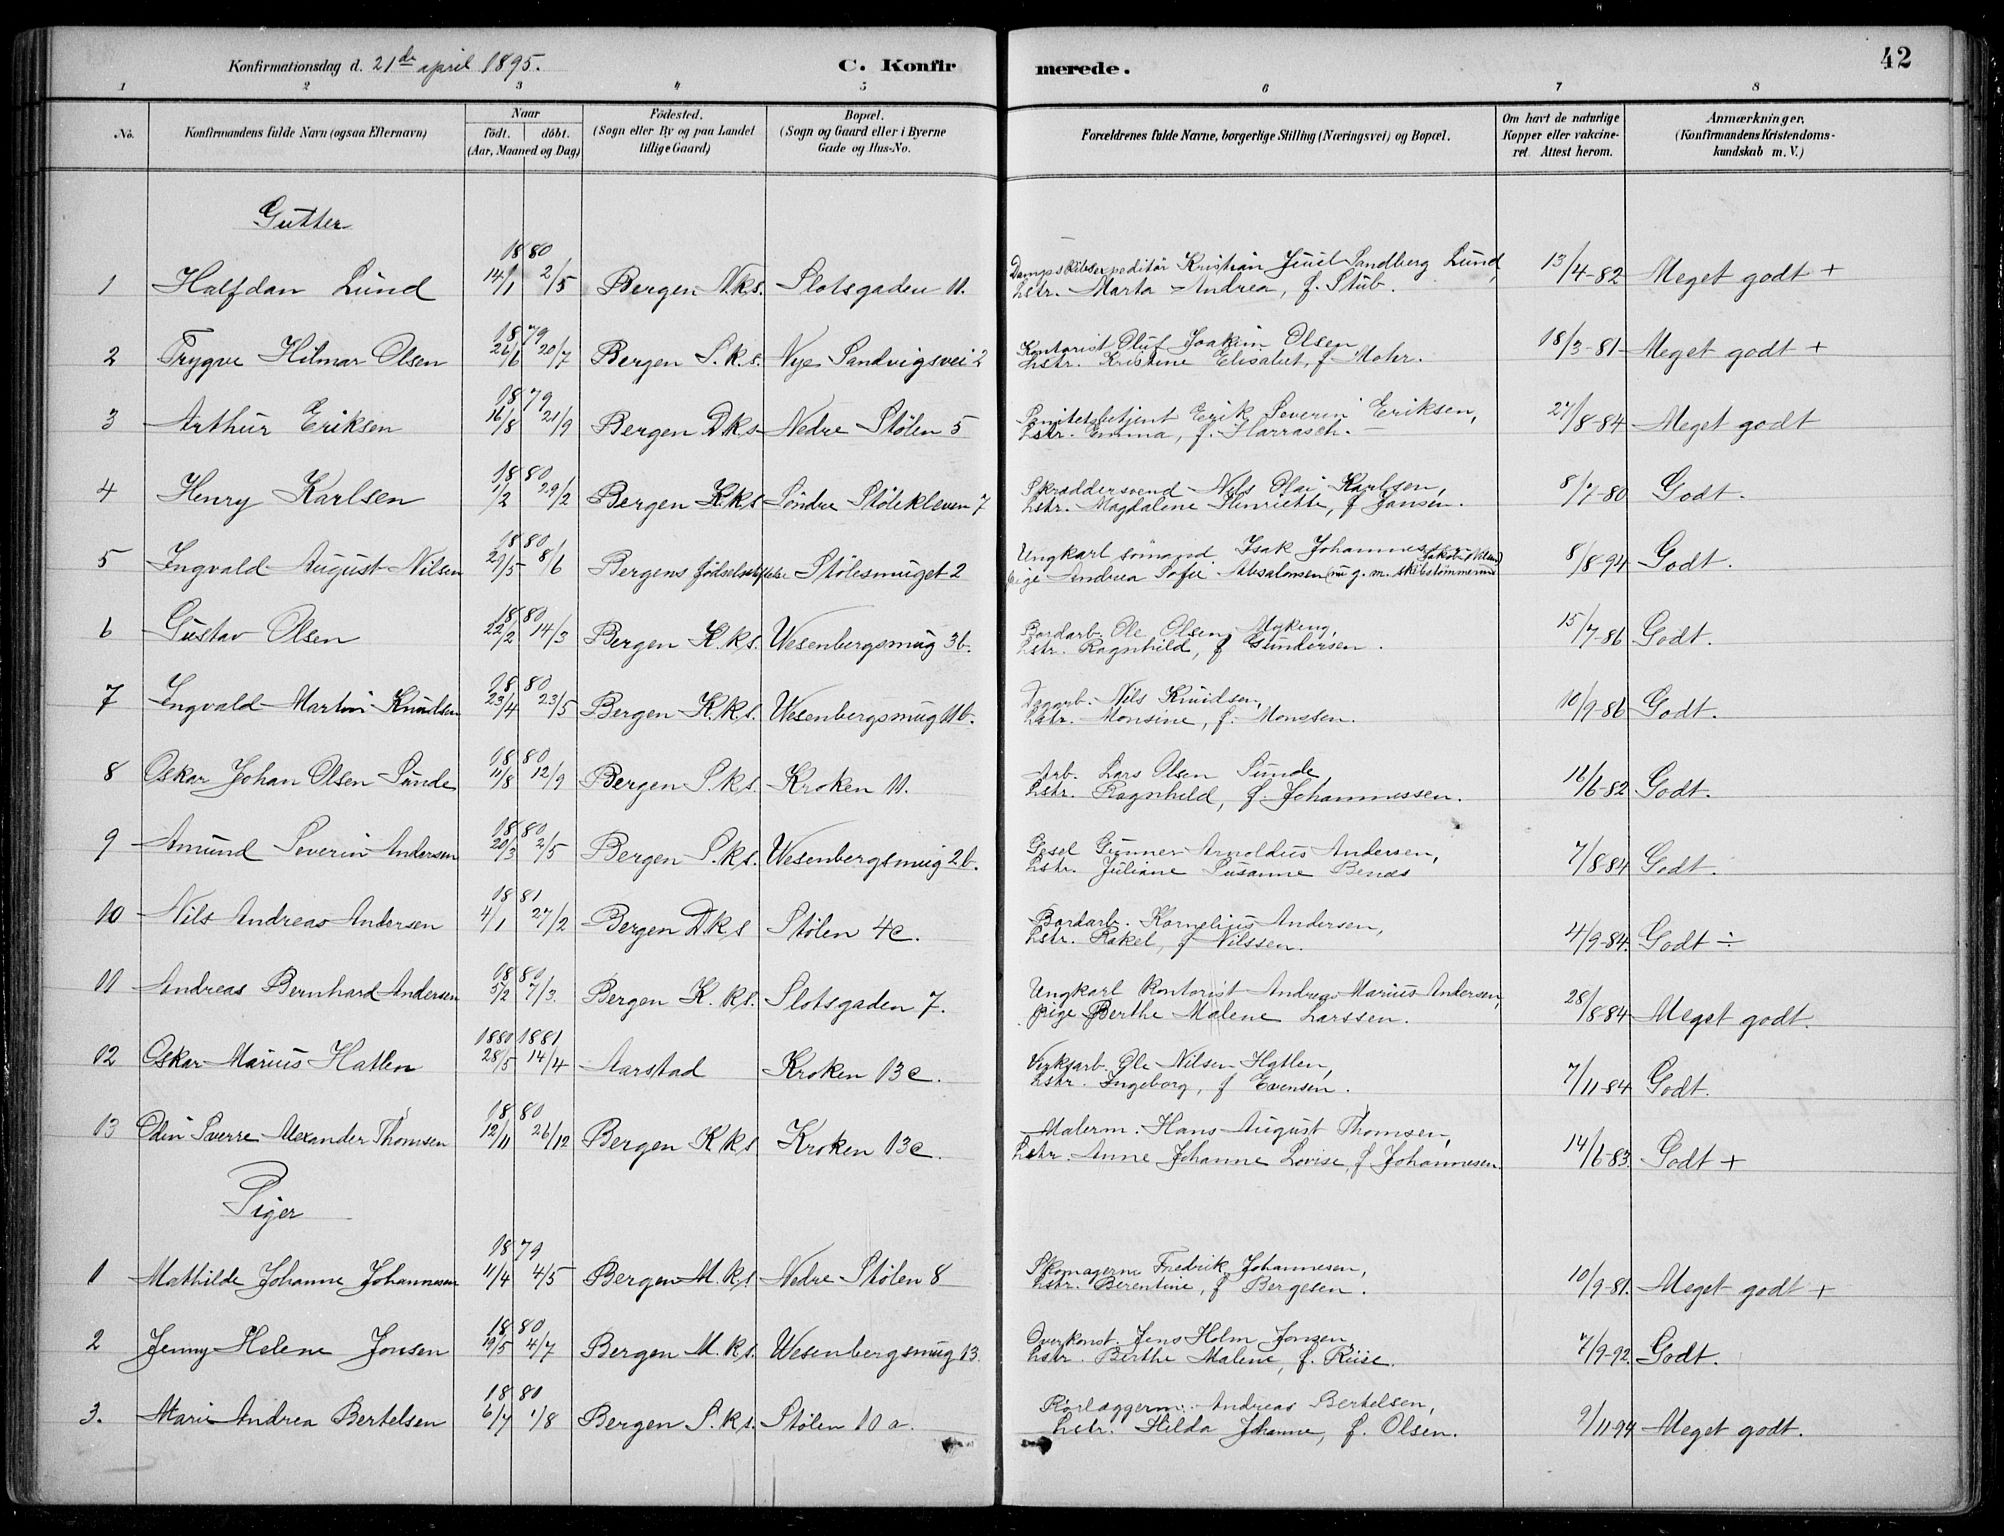 Konfirmationsdag d. 21de april 1895. C. Konfirmerede. 42
1 2 3 4 5 6 7 8
No. Konfirmandens fulde Navn (ogsaa Efternavn) Naar født. døbt. (Aar, Maaned og Dag) Fødested. (Sogn eller By og paa Landet tillige Gaard) Bopæl. (Sogn og Gaard eller i Byerne Gade og Hus-No. Forældrenes fulde Navne, borgerlige Stilling (Næringsvei) og Bopæl. Om havt de naturlige Kopper eller vakcineret. Attest herom. Anmærkninger. (Konfirmandens Kristendomskundskab m. V.)
Gutter
1 Halfdan Lund 1880 14/1 2/5 Bergen N.ks. Slotsgaden 11. Dampskibsexpeditør Kristian Juul Sandberg Lund, 13/4-82 Meget godt +
hstr. Marta Andrea, f. Stub.
2 Trygve Hilmar Olsen 1879 26/6 20/7 Bergen S.k.s. Nye Sandvigsvei 2 Kontorist Oluf Joakim Olsen 18/3-81 Meget godt +
hstr. Kristine Elisabet, f. Mohr.
3 Arthur Eriksen 1879 16/8 21/9 Bergen D.ks. Nedre Stølen 5 Erik Severin Eriksen, 27/8-84 Meget godt
hstr. Emma, f. Harrasch.
4 Henry Karlsen 1880 /2 29/2 Bergen K.ks. Søndre Stølekleven 7 Skræddersvend Nils Olai Karlsen, 8/7-80 Godt.
hstr. Magdalene Henriette, f. Jansen.
5 Ingvald August Nilsen 1880 29/5 8/6 Bergens fødselsstiftelse Stølesmuget 2 Ungkarl sømand Isak Johannes 8/8-94 Godt.
Pige Andrea Sofie Absalonsen (nu g. m. skibstømmermd
6 Gustav Olsen 1880 22/2 14/3 Bergen K.ks. Wesenbergsmug 3b. Bordarb. Ole Olsen 15/7-86 Godt.
hstr. Ragnhild, f. Gundersen.
7 Ingvald Martin Knudsen 1880 23/4 23/5 Bergen K.ks. Wesenbergsmug 11b. Dagarb. Nils Knudsen, 10/9-86 Godt.
hstr. Monsine, f. Monssen.
8 Oskar Johan Olsen Sunde 1880 11/8 12/9 Bergen S.ks. Kroken 11. Arb. Lars Olsen Sunde, 16/6-82 Godt.
hstr. Ragnhild, f. Johannessen.
9 Amund Severin Andersen 1880 20/3 2/5 Bergen S.ks. Wesenbergsmug 2b. Gesel Gunner Arnoldus Andersen, 7/8-84 Godt.
hstr. Juliane Susanne
10 Nils Andreas Andersen 1881 4/1 27/2 Bergen D.ks Stølen 4c. Bordarb. Kornelius Andersen, 4/9-84. Godt ÷
hstr. Rakel, f. Nilssen.
11 Andreas Bernhard Andersen 1880 5/2 7/3. Bergen K.ks. Slotsgaden 7. Ungkarl Kontorist Andreas Marius Andersen, 28/8-84 Meget godt.
pige Berthe Malene Larssen.
12 Oskar Marius Hatlen 1880 1881 28/5 14/4 Aarstad Kroken 13c. Verksarb. Ole Nilsen Hatlen, 7/11-84 Godt.
hstr. Ingeborg, f. Evensen.
13 Odin Sverre Alexander Thomsen 1880 12/11 26/12 Bergen K.ks Kroken 13c. Malerm. Hans August Thomsen, 14/6-83. Godt +
hstr. Anne Johanne Lovise, f. Johannesen.
Piger
1 Mathilde Johanne Johannesen 1879 11/4 4/5 Bergen M.ks. Nedre Stølen 8 Fredrik Johannesen, 10/9-81. Meget godt +
hstr. Berentine, f. Bergesen.
2 Jenny Helene Jonsen 1880 19/5 4/7 Bergen M.ks. Wesenbergsmug 13. Overkonst. Jens Holm Jonsen 7/9-92. Godt.
hstr. Berthe Malene, f. Riise.
3. Marie Andrea Bertelsen 1880 6/7 1/8 Bergen S.ks. Stølen 10 a. Rørlæggerm. Andreas Bertelsen, 9/11-94 Meget godt.
hstr. Hilda Johanne, f. Olsen.